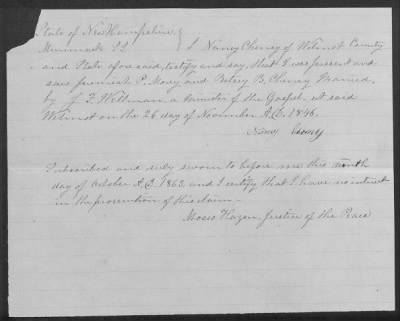 State of New Hampshire }
Merrimack SS. } I Nancy Cheney of Wilmot County
and State aforesaid, testify and say, that I was present and
saw Jeremiah P. Morey and Betsey B. Cheney Married,
by J. F. Wittman a minister of the Gospel. At said
Wilmot on the 26 day of November A.D. 1846.
Nancy Cheney
Subscribed and duly sworn to before me this ninth
day of October A.D. 1863, and I certify that I have no interest
in the prosecution of this claim—
Moses Hazen, Justice of the Peace